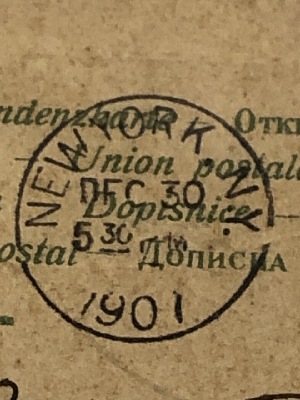 ndenzkarte – Отк
Union postal
Dopisnice
ostal – Дописна
NEW YORK, N.Y.
DEC 30
5 30
1901